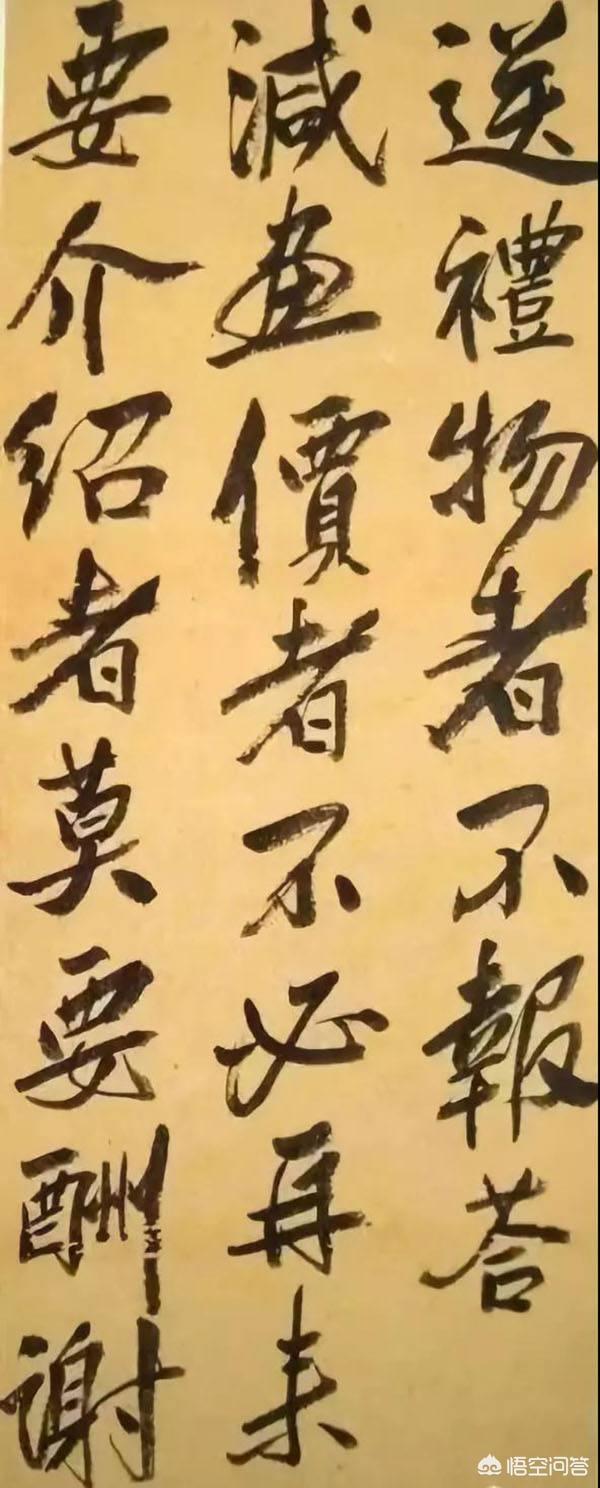 送禮物者不報荅
減畫價者不必再来
要介紹者莫要酬謝
悟空问答